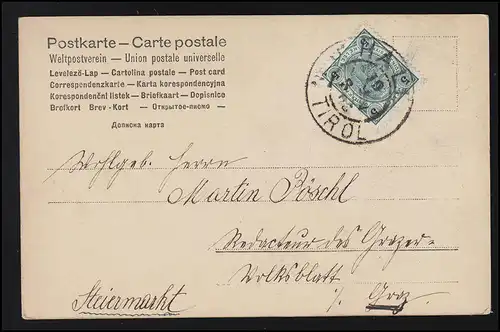 Postkarte — Carte postale
Weltpostverein — Union postale universelle
Levelező-Lap — Cartolina postale — Post card
Correspondenzkarte — Karta korespondencyjna
Korespondenční lístek — Briefkaart — Dopisnico
Brefkort Brev-Kort — Открытое-письмо —
Дописна карта
HALL
TIROL
Wohlgeb. Herrn
Martin Pöschl
Redacteur des Grazer-
Volksblatt
Steiermarkt
i/. Graz